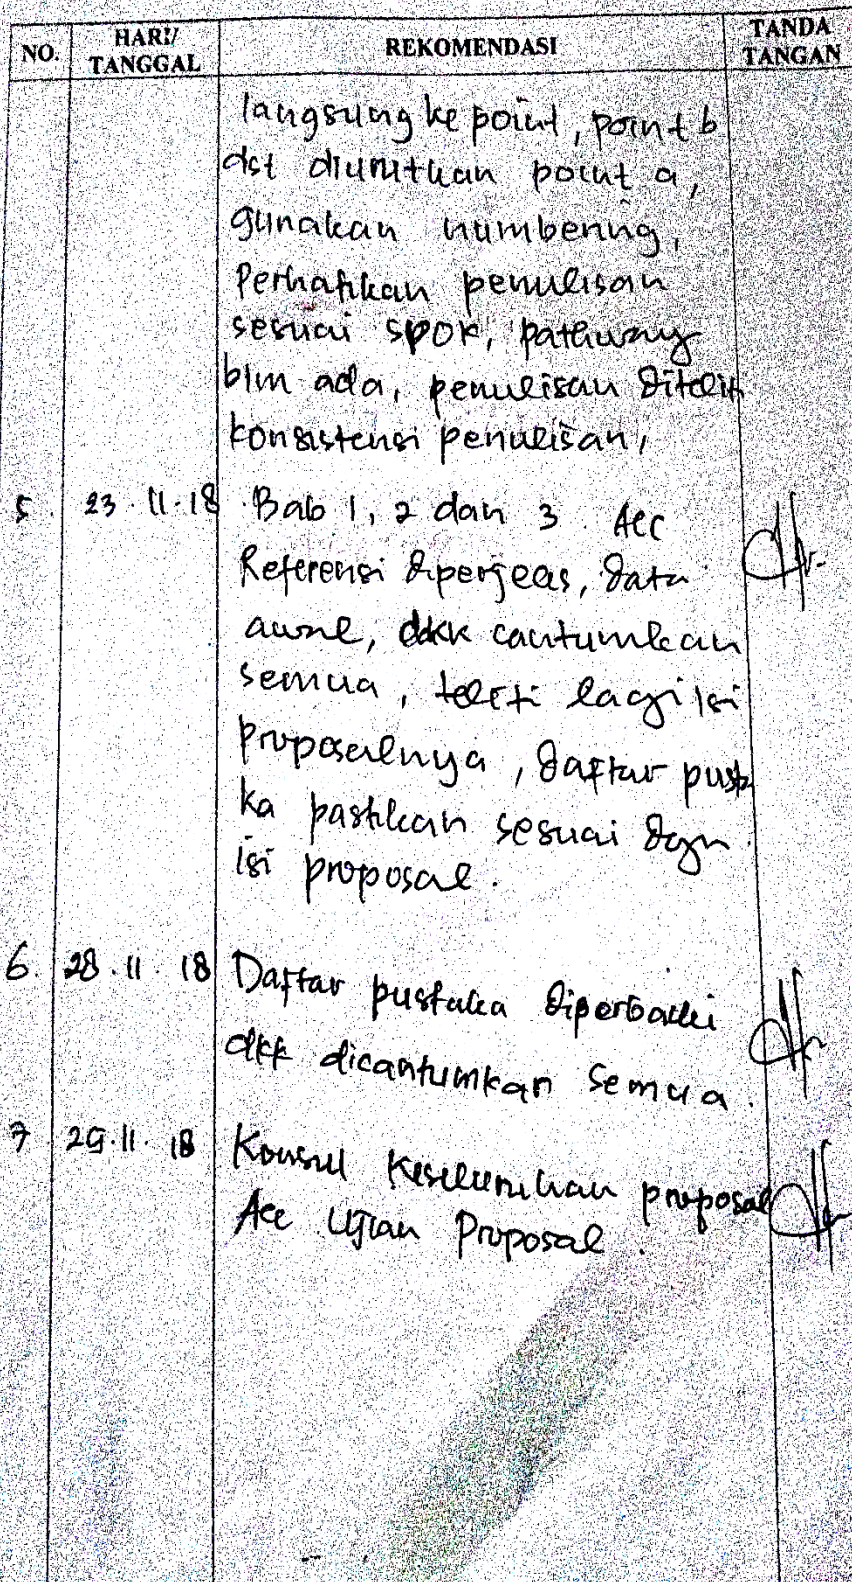 NO. HARI/ TANGGAL REKOMENDASI TANDA TANGAN
langsung ke point, point b
dst diurutkan point a,
gunakan numbering,
Perhatikan penulisan
sesuai SPOK, pathway
blm ada, penulisan diteliti
konsistensi penulisan,
5. 23.11.18 Bab 1, 2 dan 3 Acc
Referensi diperjelas, data
awal, dkk cantumkan
semua, teliti lagi isi
proposalnya, daftar pusta
ka pastikan sesuai dgn
isi proposal.
6. 28.11.18 Daftar pustaka diperbaiki
dkk dicantumkan semua.
7 29.11.18 Konsul keseluruhan proposal
Acc Ujian Proposal.